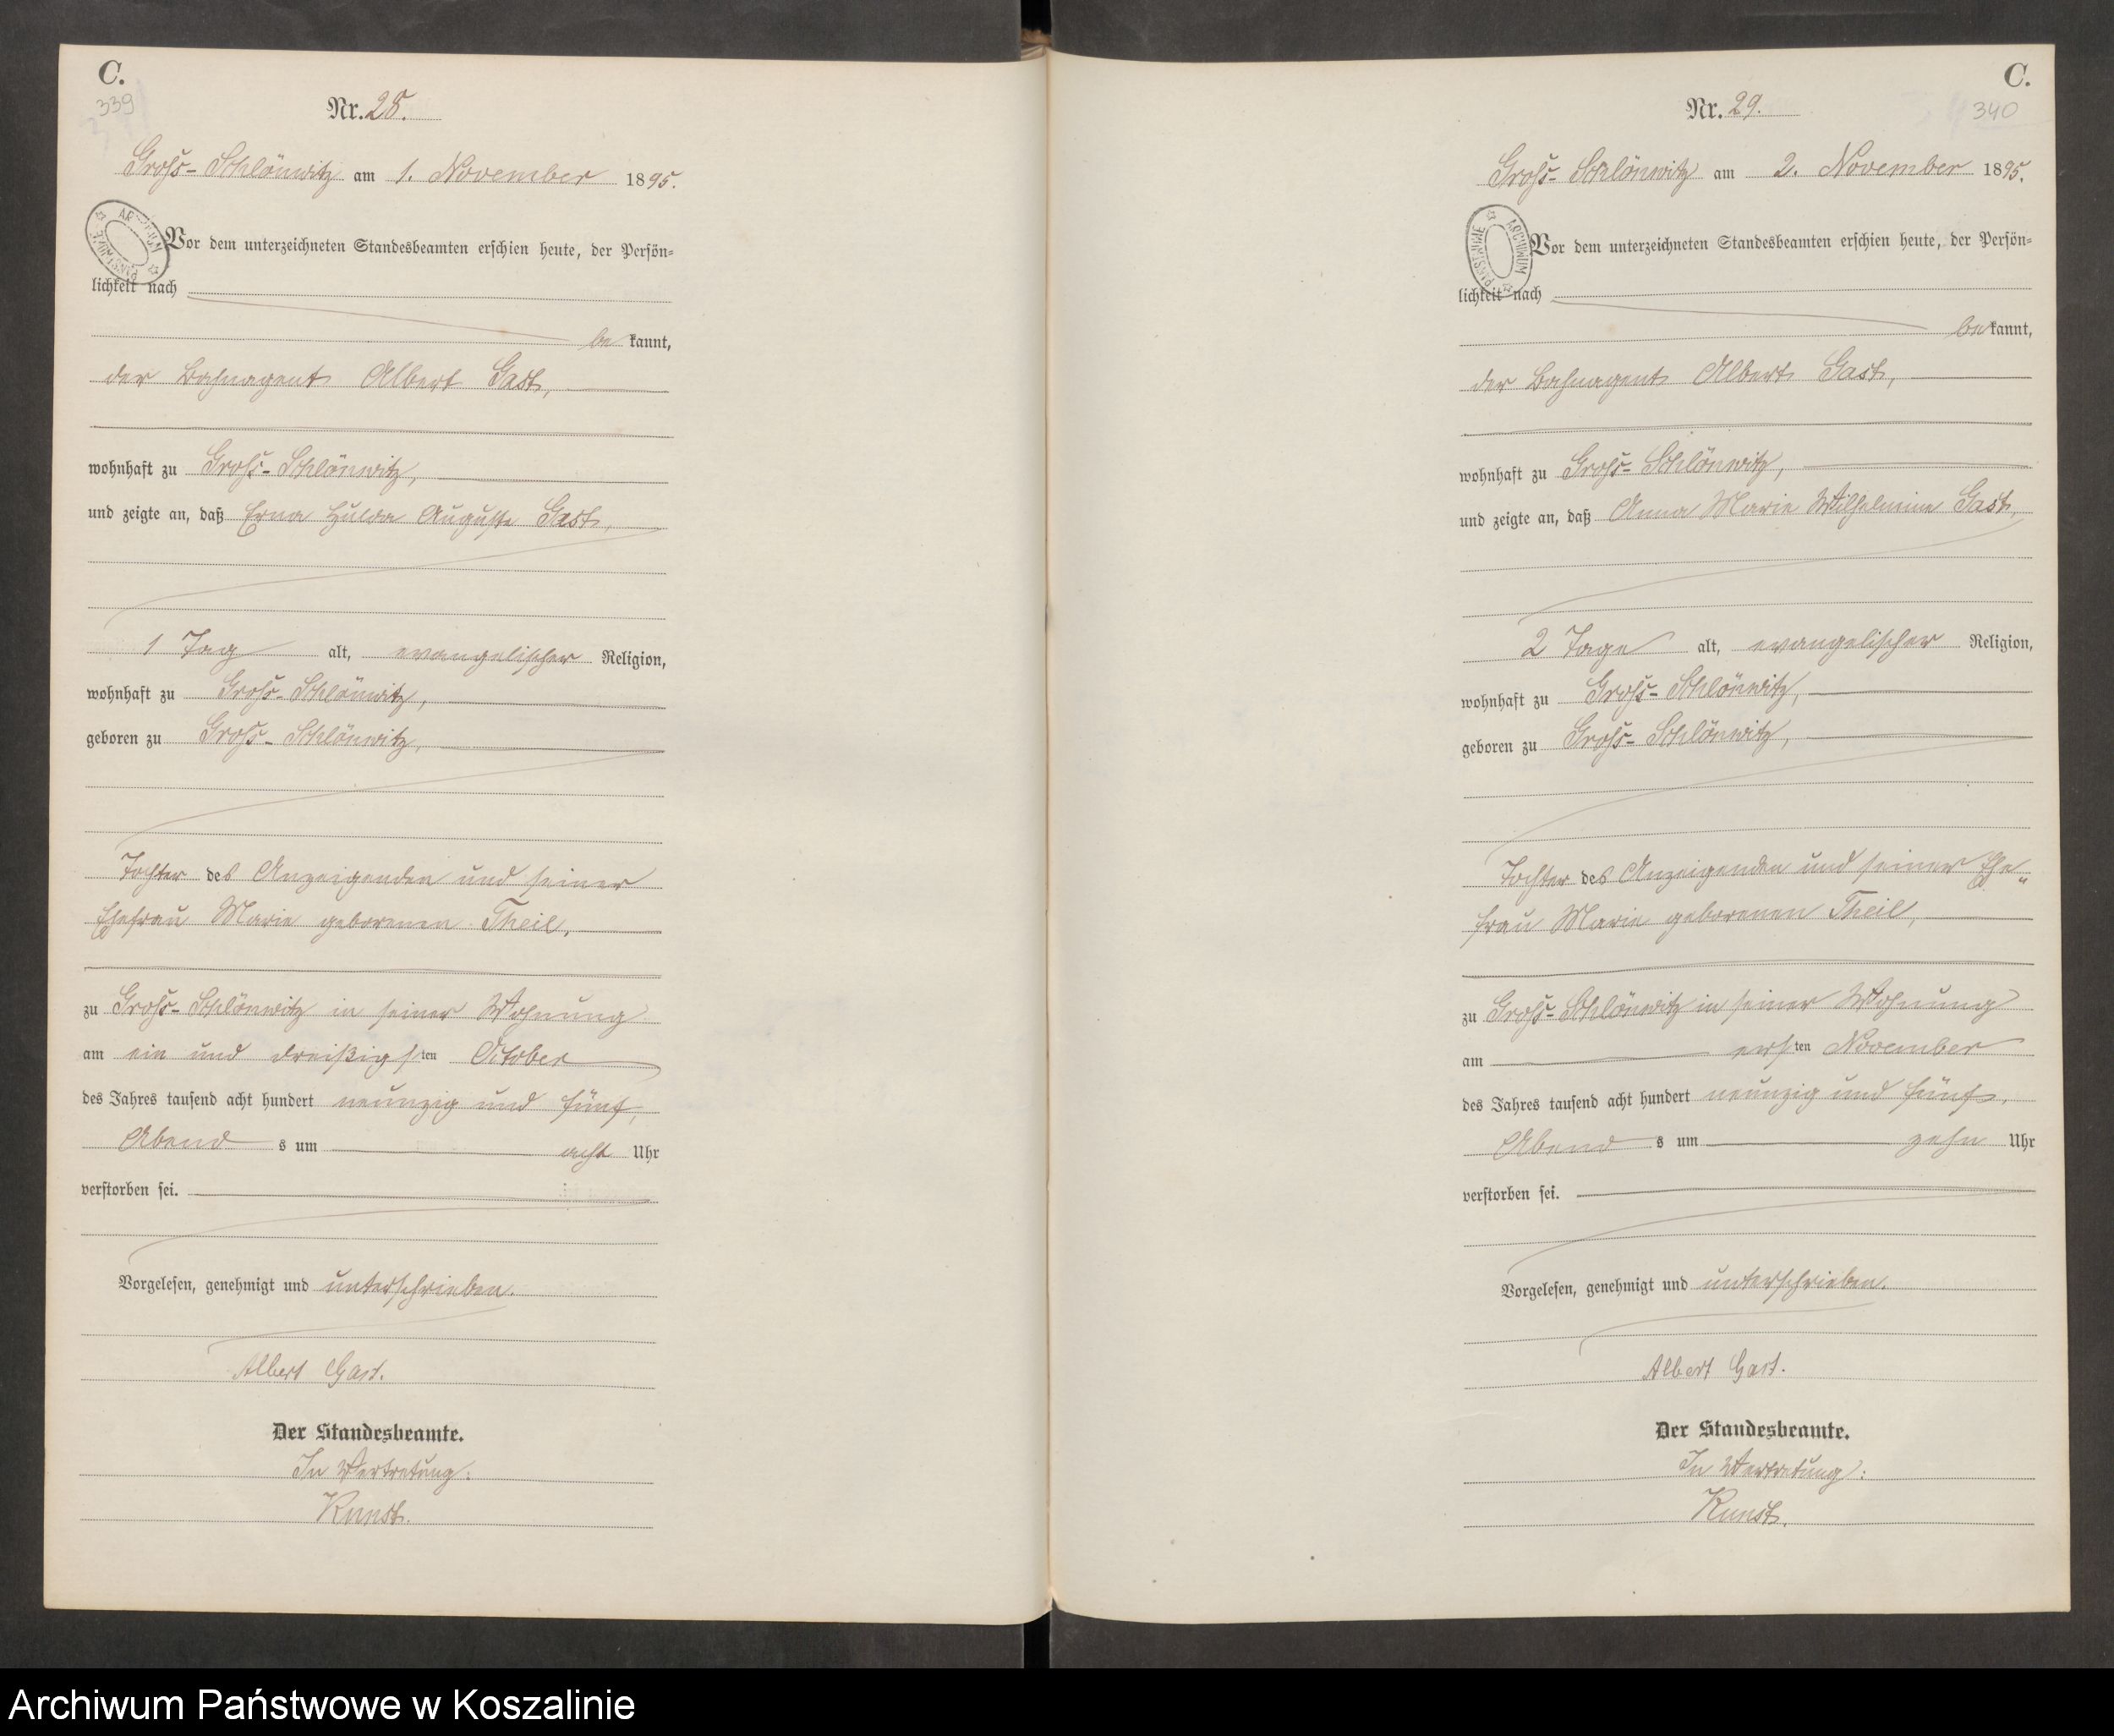 C.
339
Nr. 28.
Groß-Schlönwitz am 1. November 1895.
Vor dem unterzeichneten Standesbeamten erschien heute, der Persön-
lichkeit nach
be kannt,
der Bahnagent Albert Gast,
wohnhaft zu Groß-Schlönwitz,
und zeigte an, daß Erna Hulda Auguste Gast,
1 Tag alt, evangelischer Religion,
wohnhaft zu Groß-Schlönwitz,
geboren zu Groß-Schlönwitz,
Tochter des Anzeigenden und seiner
Ehefrau Marie geborenen Theil,
zu Groß-Schlönwitz in seiner Wohnung
am ein und dreißigsten October
des Jahres tausend acht hundert neunzig und fünf,
Abend s um acht Uhr
verstorben sei.
Vorgelesen, genehmigt und unterschrieben.
Albert Gast.
Der Standesbeamte.
In Vertretung:
Kunst.
C.
340
Nr. 29.
Groß-Schlönwitz am 2. November 1895.
ARCHIWUM PAŃSTWOWE
Vor dem unterzeichneten Standesbeamten erschien heute, der Persön-
lichkeit nach
be kannt,
der Bahnagent Albert Gast,
wohnhaft zu Groß-Schlönwitz,
und zeigte an, daß Anna Marie Wilhelmine Gast,
2 Tage alt, evangelischer Religion,
wohnhaft zu Groß-Schlönwitz,
geboren zu Groß-Schlönwitz,
Tochter des Anzeigenden und seiner Ehe„
frau Marie geborenen Theil,
zu Groß-Schlönwitz in seiner Wohnung
am ersten November
des Jahres tausend acht hundert neunzig und fünf,
Abend s um zehn Uhr
verstorben sei.
Vorgelesen, genehmigt und unterschrieben.
Albert Gast.
Der Standesbeamte.
In Vertretung:
Kunst.
Archiwum Państwowe w Koszalinie